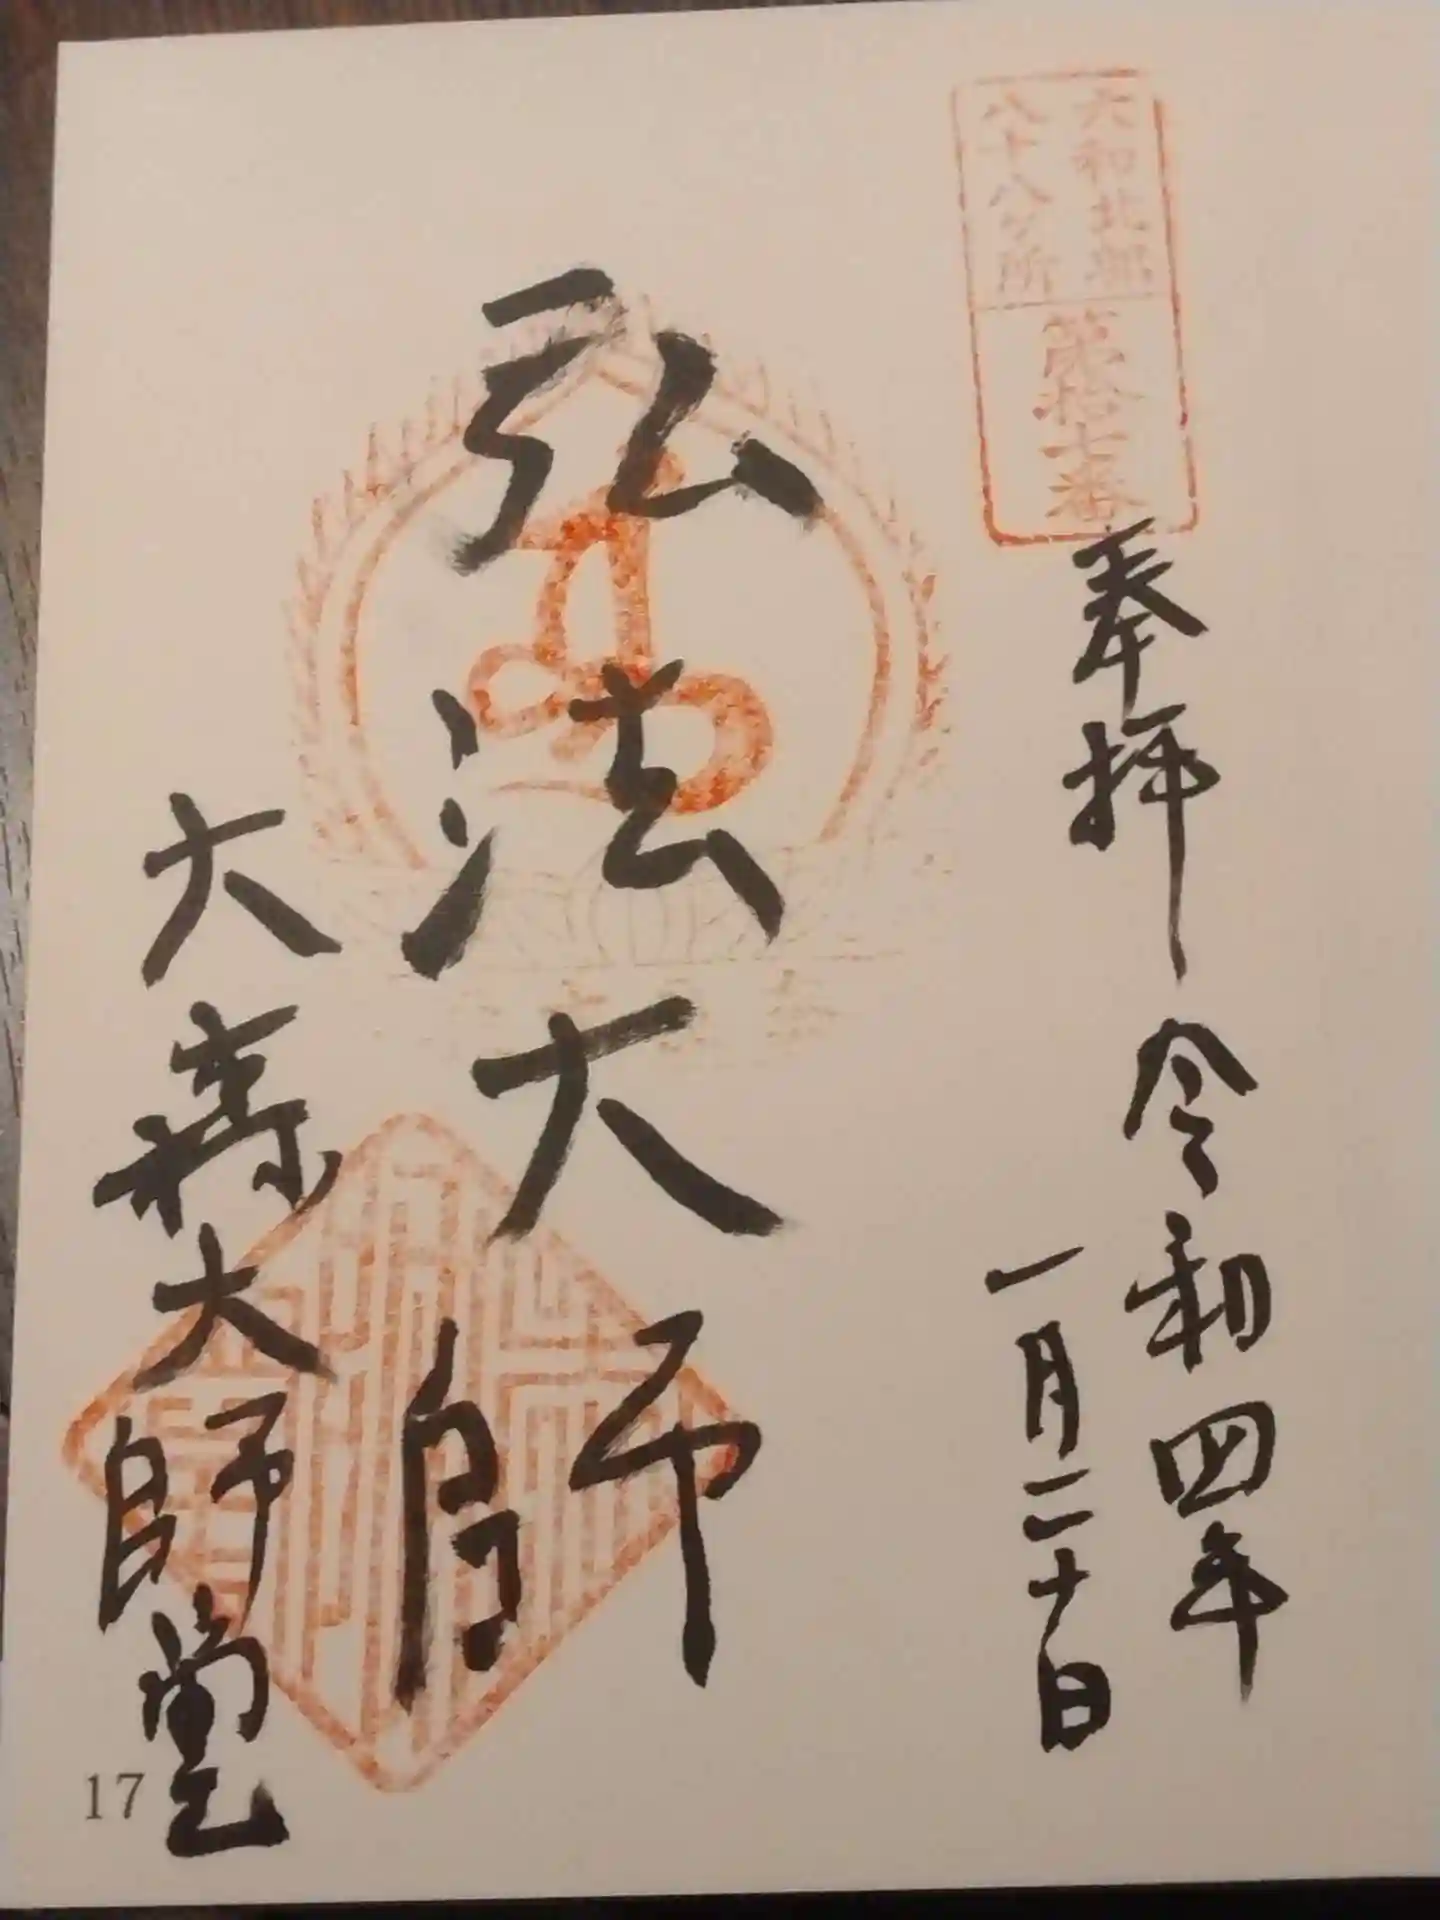 大和北部
八十八ヶ所
第拾七番
奉拝 令和四年
一月二十日
弘法大師
大森大師堂
17